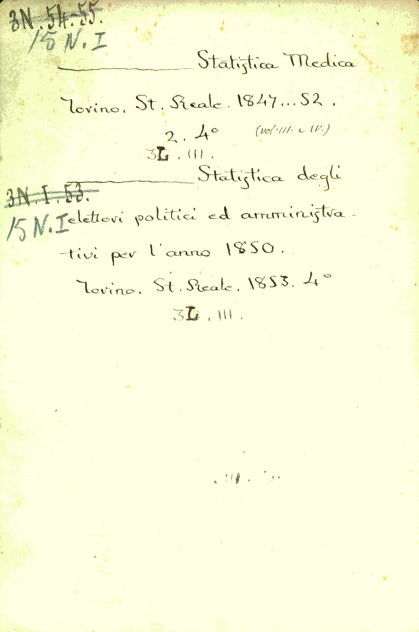 3N. 54-55.
15 N. I
Statistica Medica
Torino. St. Reale. 1847...52.
2. 4° (vol. III. e IV.)
3L. III.
Statistica degli
3N. I. 53.
15 N. I
elettori politici ed amministra-
tivi per l'anno 1850.
Torino. St. Reale. 1853. 4°
3L. III.